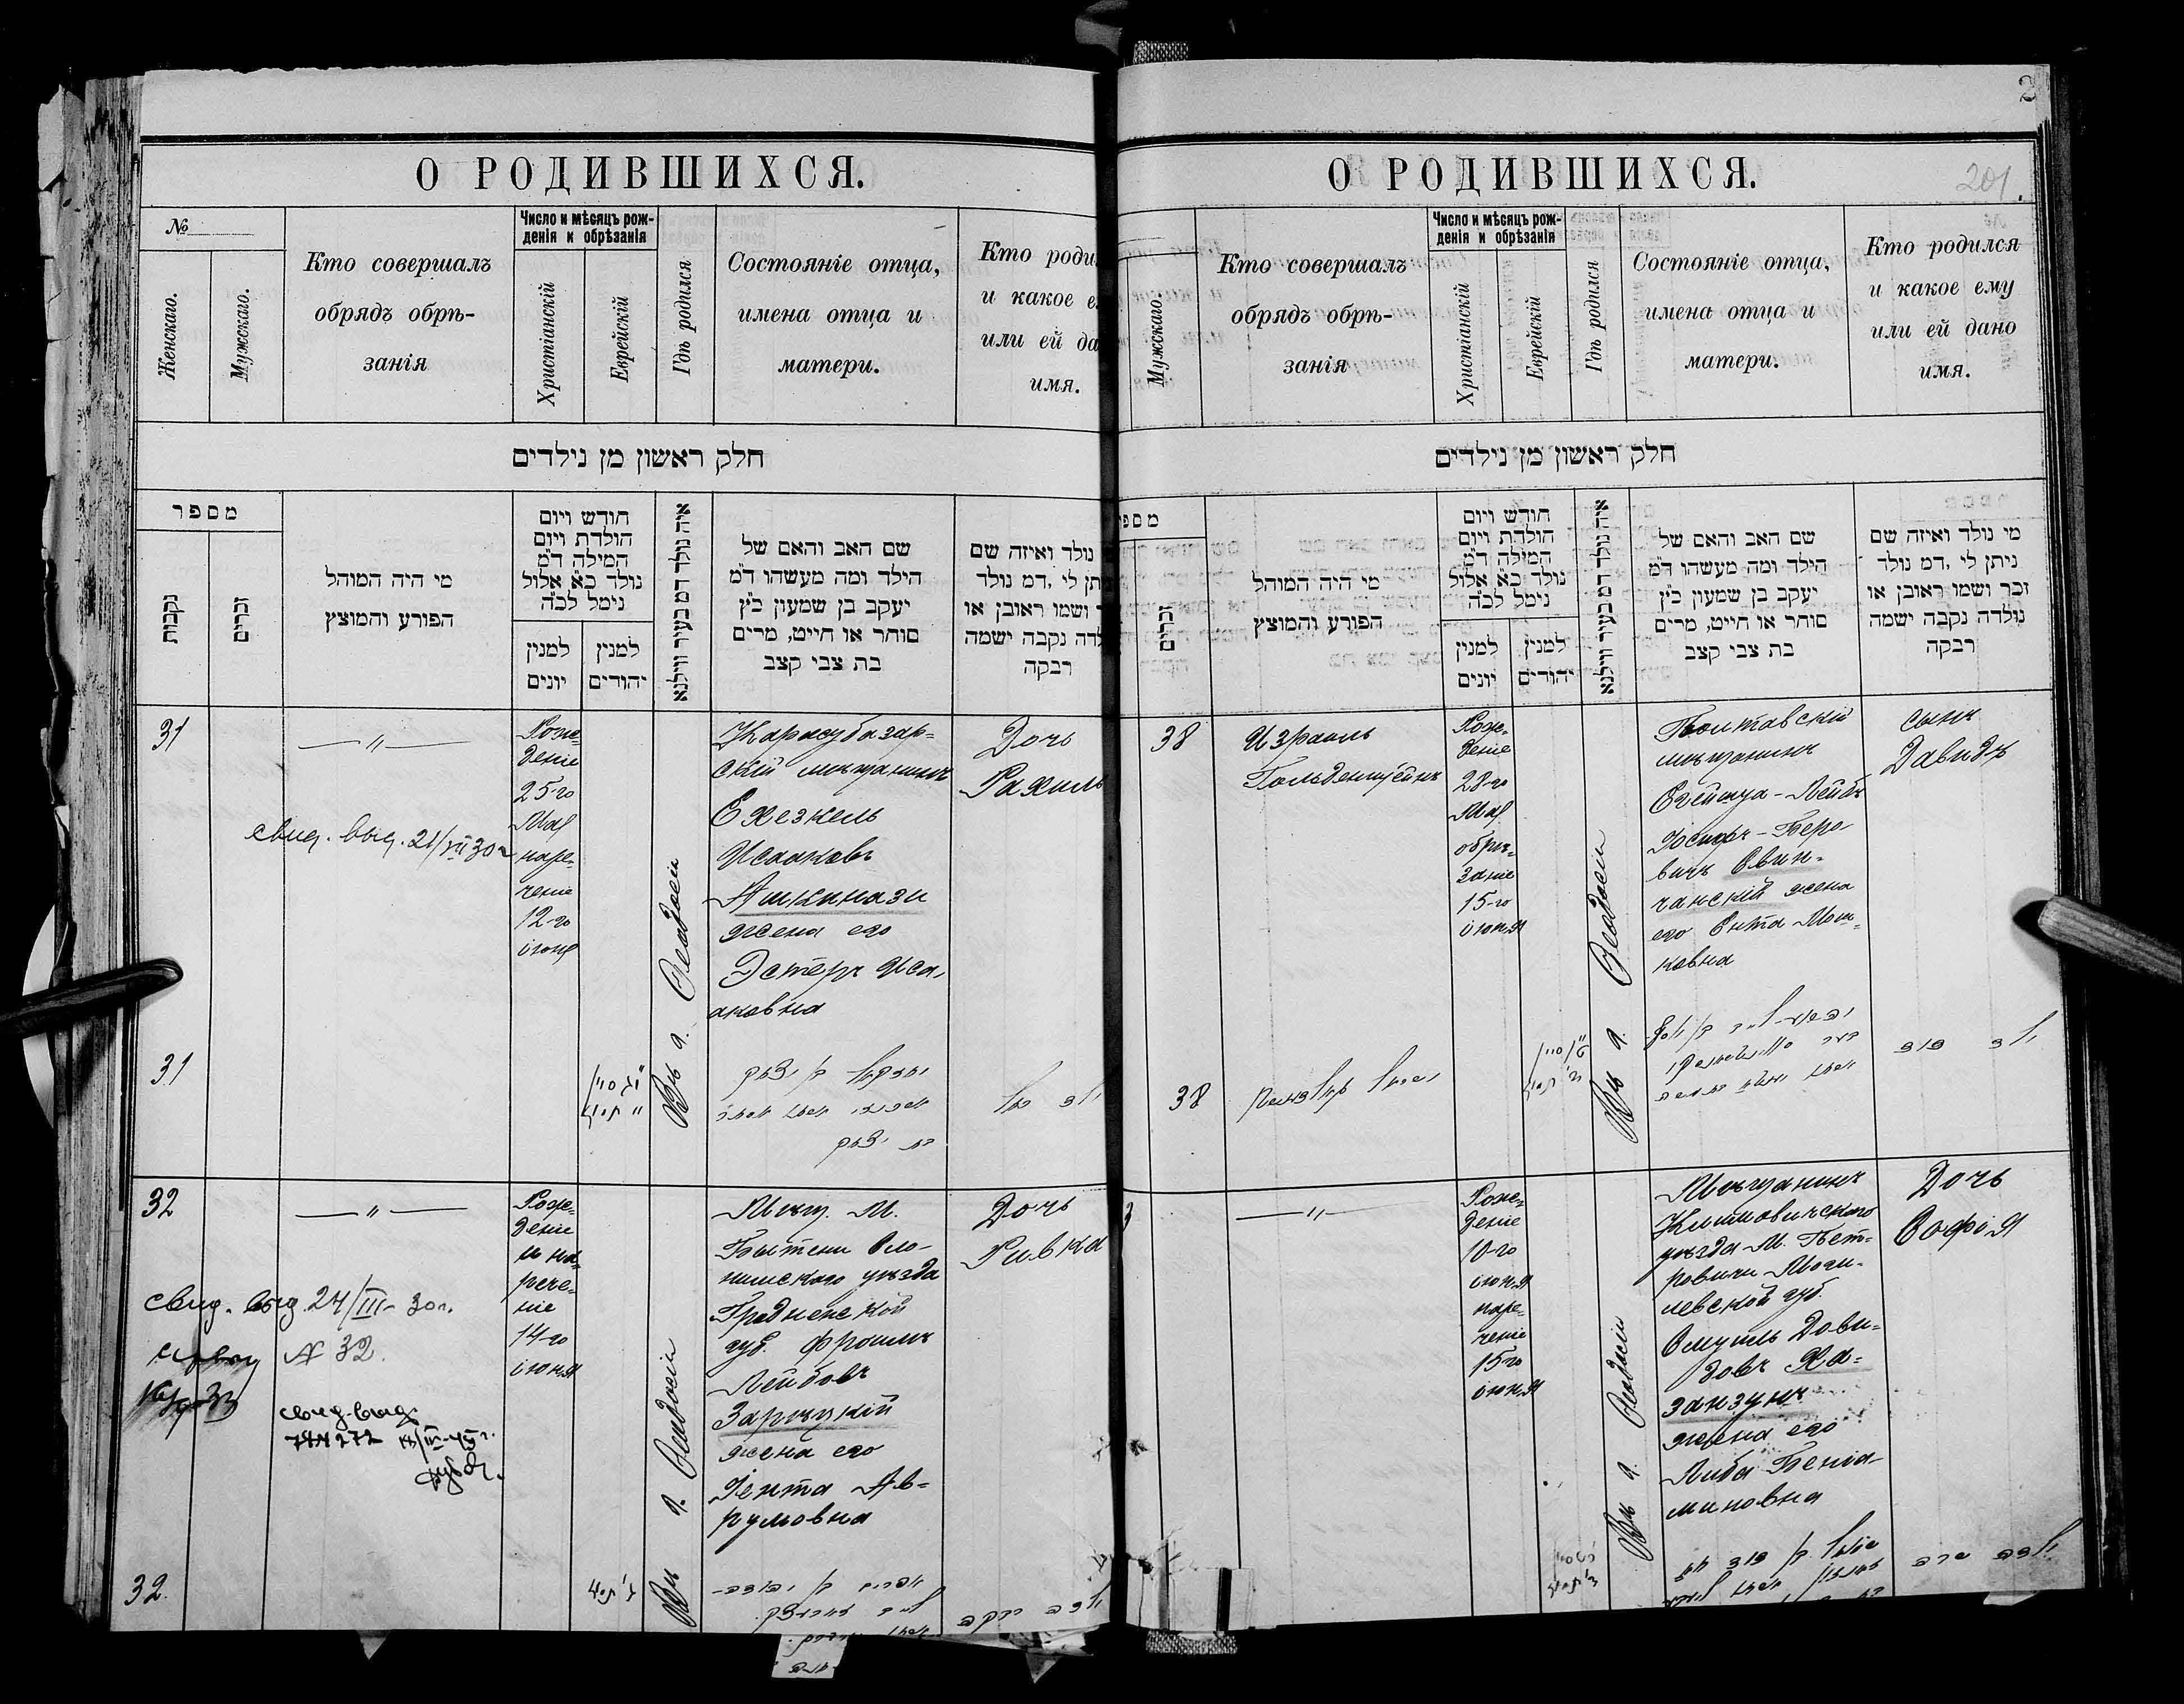 О РОДИВШИХСЯ.
№
Женскаго.
Мужскаго.
Кто совершалъ
обрядъ обрѣ-
занія
Число и мѣсяцъ рож-
денія и обрѣзанія
Христіанскій
Еврейскій
Гдѣ родился
Состояніе отца,
имена отца и
матери.
Кто роди
и какое е
или ей да
имя.
חלק ראשון מן נילדים
מספר
נקבות
זכרים
מי היה המוהל
הפורע והמוצץ
חודש ויום
הולדת ויום
המילה ד״מ
נולד כ״א אלול
נימל לכ״ה
למנין
יונים
למנין
יהודים
איה נולד דמ בעיר ווילנא
שם האב והאם של
הילד ומה מעשהו ד״מ
יעקב בן שמעון כ״ץ
סוחר או חייט, מרים
בת צבי קצב
נולד ואיזה שם
יתן לי, דמ נולד
ר ושמו ראובן או
לדה נקבה ישמה
רבקה
31
— „ —
свид. выд. 21/VII 30 г
Рож-
деніе
25-го
Мая
наре-
ченіе
12-го
іюня
Въ г. Ѳеодосіи
Карасубазар-
скій мѣщанинъ
Ехезкель
Исааковъ
Ашкинази
жена его
Эстеръ Иса-
аковна
Дочь
Рахиль
31
יחזקאל בן יצחק
בת יצחק
32
— „ —
свид. выд. 24/III - 30 г.
№ 32.
свид. выд.
Рож-
деніе
и на-
рече-
ніе
14-го
іюня
Въ г. Ѳеодосіи
Мѣщ. м.
Бытени Сло-
нимскаго уѣзда
Гродненской
губ. Фроимъ
Лейбовъ
Зарѣцкій
жена его
Іента Ав-
румовна
Дочь
Ривка
32.
ילדה רבקה
О РОДИВШИХСЯ.
2
201.
Мужскаго.
Кто совершалъ
обрядъ обрѣ-
занія
Число и мѣсяцъ рож-
денія и обрѣзанія
Христіанскій
Еврейскій
Гдѣ родился
Состояніе отца,
имена отца и
матери.
Кто родился
и какое ему
или ей дано
имя.
חלק ראשון מן נילדים
מספ
זכרים
מי היה המוהל
הפורע והמוצץ
חודש ויום
הולדת ויום
המילה ד״מ
נולד כ״א אלול
נימל לכ״ה
למנין
יונים
למנין
יהודים
איה נולד דמ בעיר ווילנא
שם האב והאם של
הילד ומה מעשהו ד״מ
יעקב בן שמעון כ״ץ
סוחר או חייט, מרים
בת צבי קצב
מי נולד ואיזה שם
ניתן לי, דמ נולד
זכר ושמו ראובן או
נולדה נקבה ישמה
רבקה
38
Израиль
Гольденштейнъ
Рож-
деніе
28-го
Мая
обрѣ-
заніе
15-го
іюня
Въ г. Ѳеодосіи
Полтавскій
мѣщанинъ
Іосифъ-Беро-
вичъ Свин-
чанскій жена
его Сита Мош-
ковна
сынъ
Давидъ
38
ילד דוד
— „ —
Рож-
деніе
10-го
іюня
наре-
ченіе
15-го
іюня
Въ г. Ѳеодосіи
Мѣщанинъ
Климовичскаго
уѣзда м. Пет-
ровичи Моги-
левской губ.
Смуиль Дови-
довъ Ха-
занзунъ
жена его
Либа Беніа-
миновна
Дочь
Софія
שמואל בן דוד
ילדה שרה